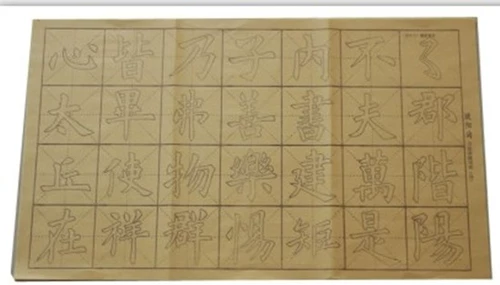 郡階陽
不夫萬是
内書建矩
子善樂惕
乃弗物群
皆畢使祥
心太丘在